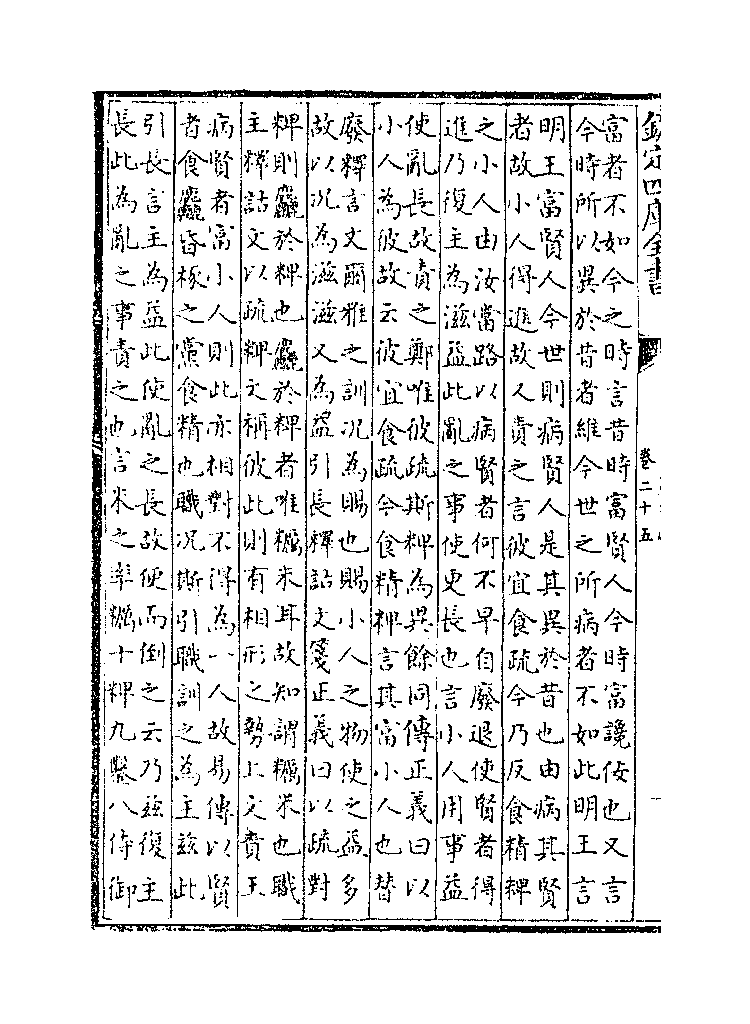 欽定四庫全書
卷二十五
富者不如今之時言昔時富賢人今時富讒佞也又言
今時所以異於昔者維今世之所病者不如此明王言
明王富賢人今世則病賢人是其異於昔也由病其賢
者故小人得進故人責之言彼宜食疏今乃反食精粺
之小人由汝當路以病賢者何不早自廢退使賢者得
進乃復主為滋益此亂之事使更長也言小人用事益
使亂長故責之鄭唯彼疏斯粺為異餘同傳正義曰以
小人為彼故云彼宜食疏今食精粺言其富小人也替
廢釋言文爾雅之訓况為賜也賜小人之物使之益多
故以况為滋滋又為益引長釋詁文箋正義曰以疏對
粺則麤於粺也麤於粺者唯糲米耳故知謂糲米也職
主釋詁文以疏粺文稱彼此則有相形之勢上文責王
病賢者富小人則此亦相對不得為一人故易傳以賢
者食麤昏椓之黨食精也職况斯引職訓之為主玆此
引長言主為益此使亂之長故便而倒之云乃玆復主
長此為亂之事責之也言米之率糲十粺九鑿八侍御